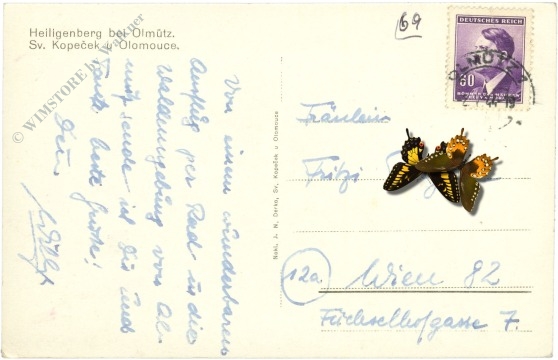 Heiligenberg bei Olmütz.
Sv. Kopeček u Olomouce.
© WIMSTORE by Wallner
69
DEUTSCHES REICH
60
BÖHMEN UND MÄHREN
OLMÜTZ
Von einem wunderbaren
Ausflug per Rad in die
Waldumgebung von Ol-
mütz sende ich Dir und
Tante beste Grüße!
Dein
Nakl. J. N. Derka, Sv. Kopeček u Olomouce
Fräulein
Fritzi
12a Wien 82
Füchselhofgasse 7.